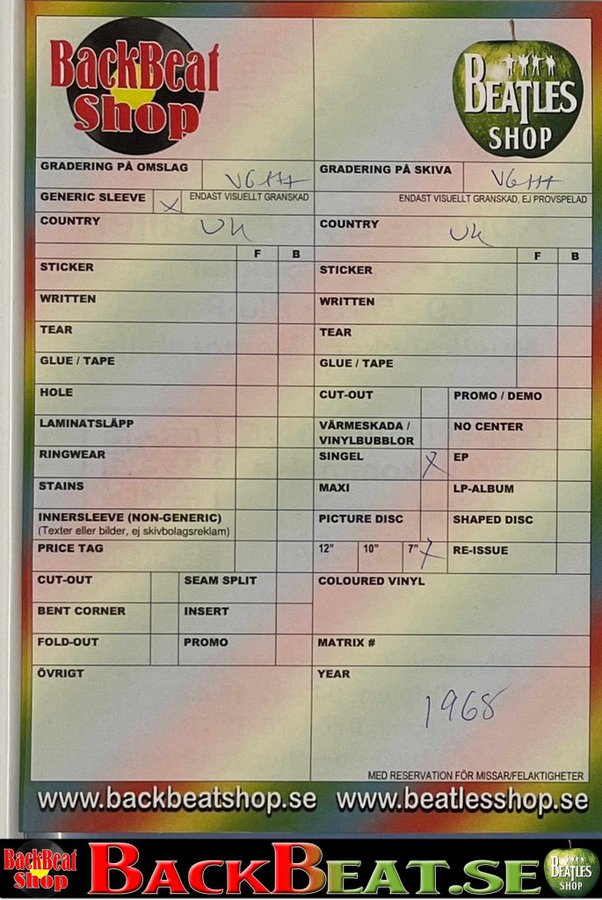 BackBeat
Shop
BEATLES
SHOP
GRADERING PÅ OMSLAG VG+++
GENERIC SLEEVE X ENDAST VISUELLT GRANSKAD
COUNTRY UK
F B
STICKER
WRITTEN
TEAR
GLUE / TAPE
HOLE
LAMINATSLÄPP
RINGWEAR
STAINS
INNERSLEEVE (NON-GENERIC)
(Texter eller bilder, ej skivbolagsreklam)
PRICE TAG
CUT-OUT SEAM SPLIT
BENT CORNER INSERT
FOLD-OUT PROMO
ÖVRIGT
GRADERING PÅ SKIVA VG+++
ENDAST VISUELLT GRANSKAD, EJ PROVSPELAD
COUNTRY UK
F B
STICKER
WRITTEN
TEAR
GLUE / TAPE
CUT-OUT PROMO / DEMO
VÄRMESKADA /
VINYLBUBBLOR NO CENTER
SINGEL X EP
MAXI LP-ALBUM
PICTURE DISC SHAPED DISC
12" 10" 7" X RE-ISSUE
COLOURED VINYL
MATRIX #
YEAR
1968
MED RESERVATION FÖR MISSAR/FELAKTIGHETER
www.backbeatshop.se www.beatlesshop.se
BackBeat
Shop
BACKBEAT.SE
BEATLES
SHOP